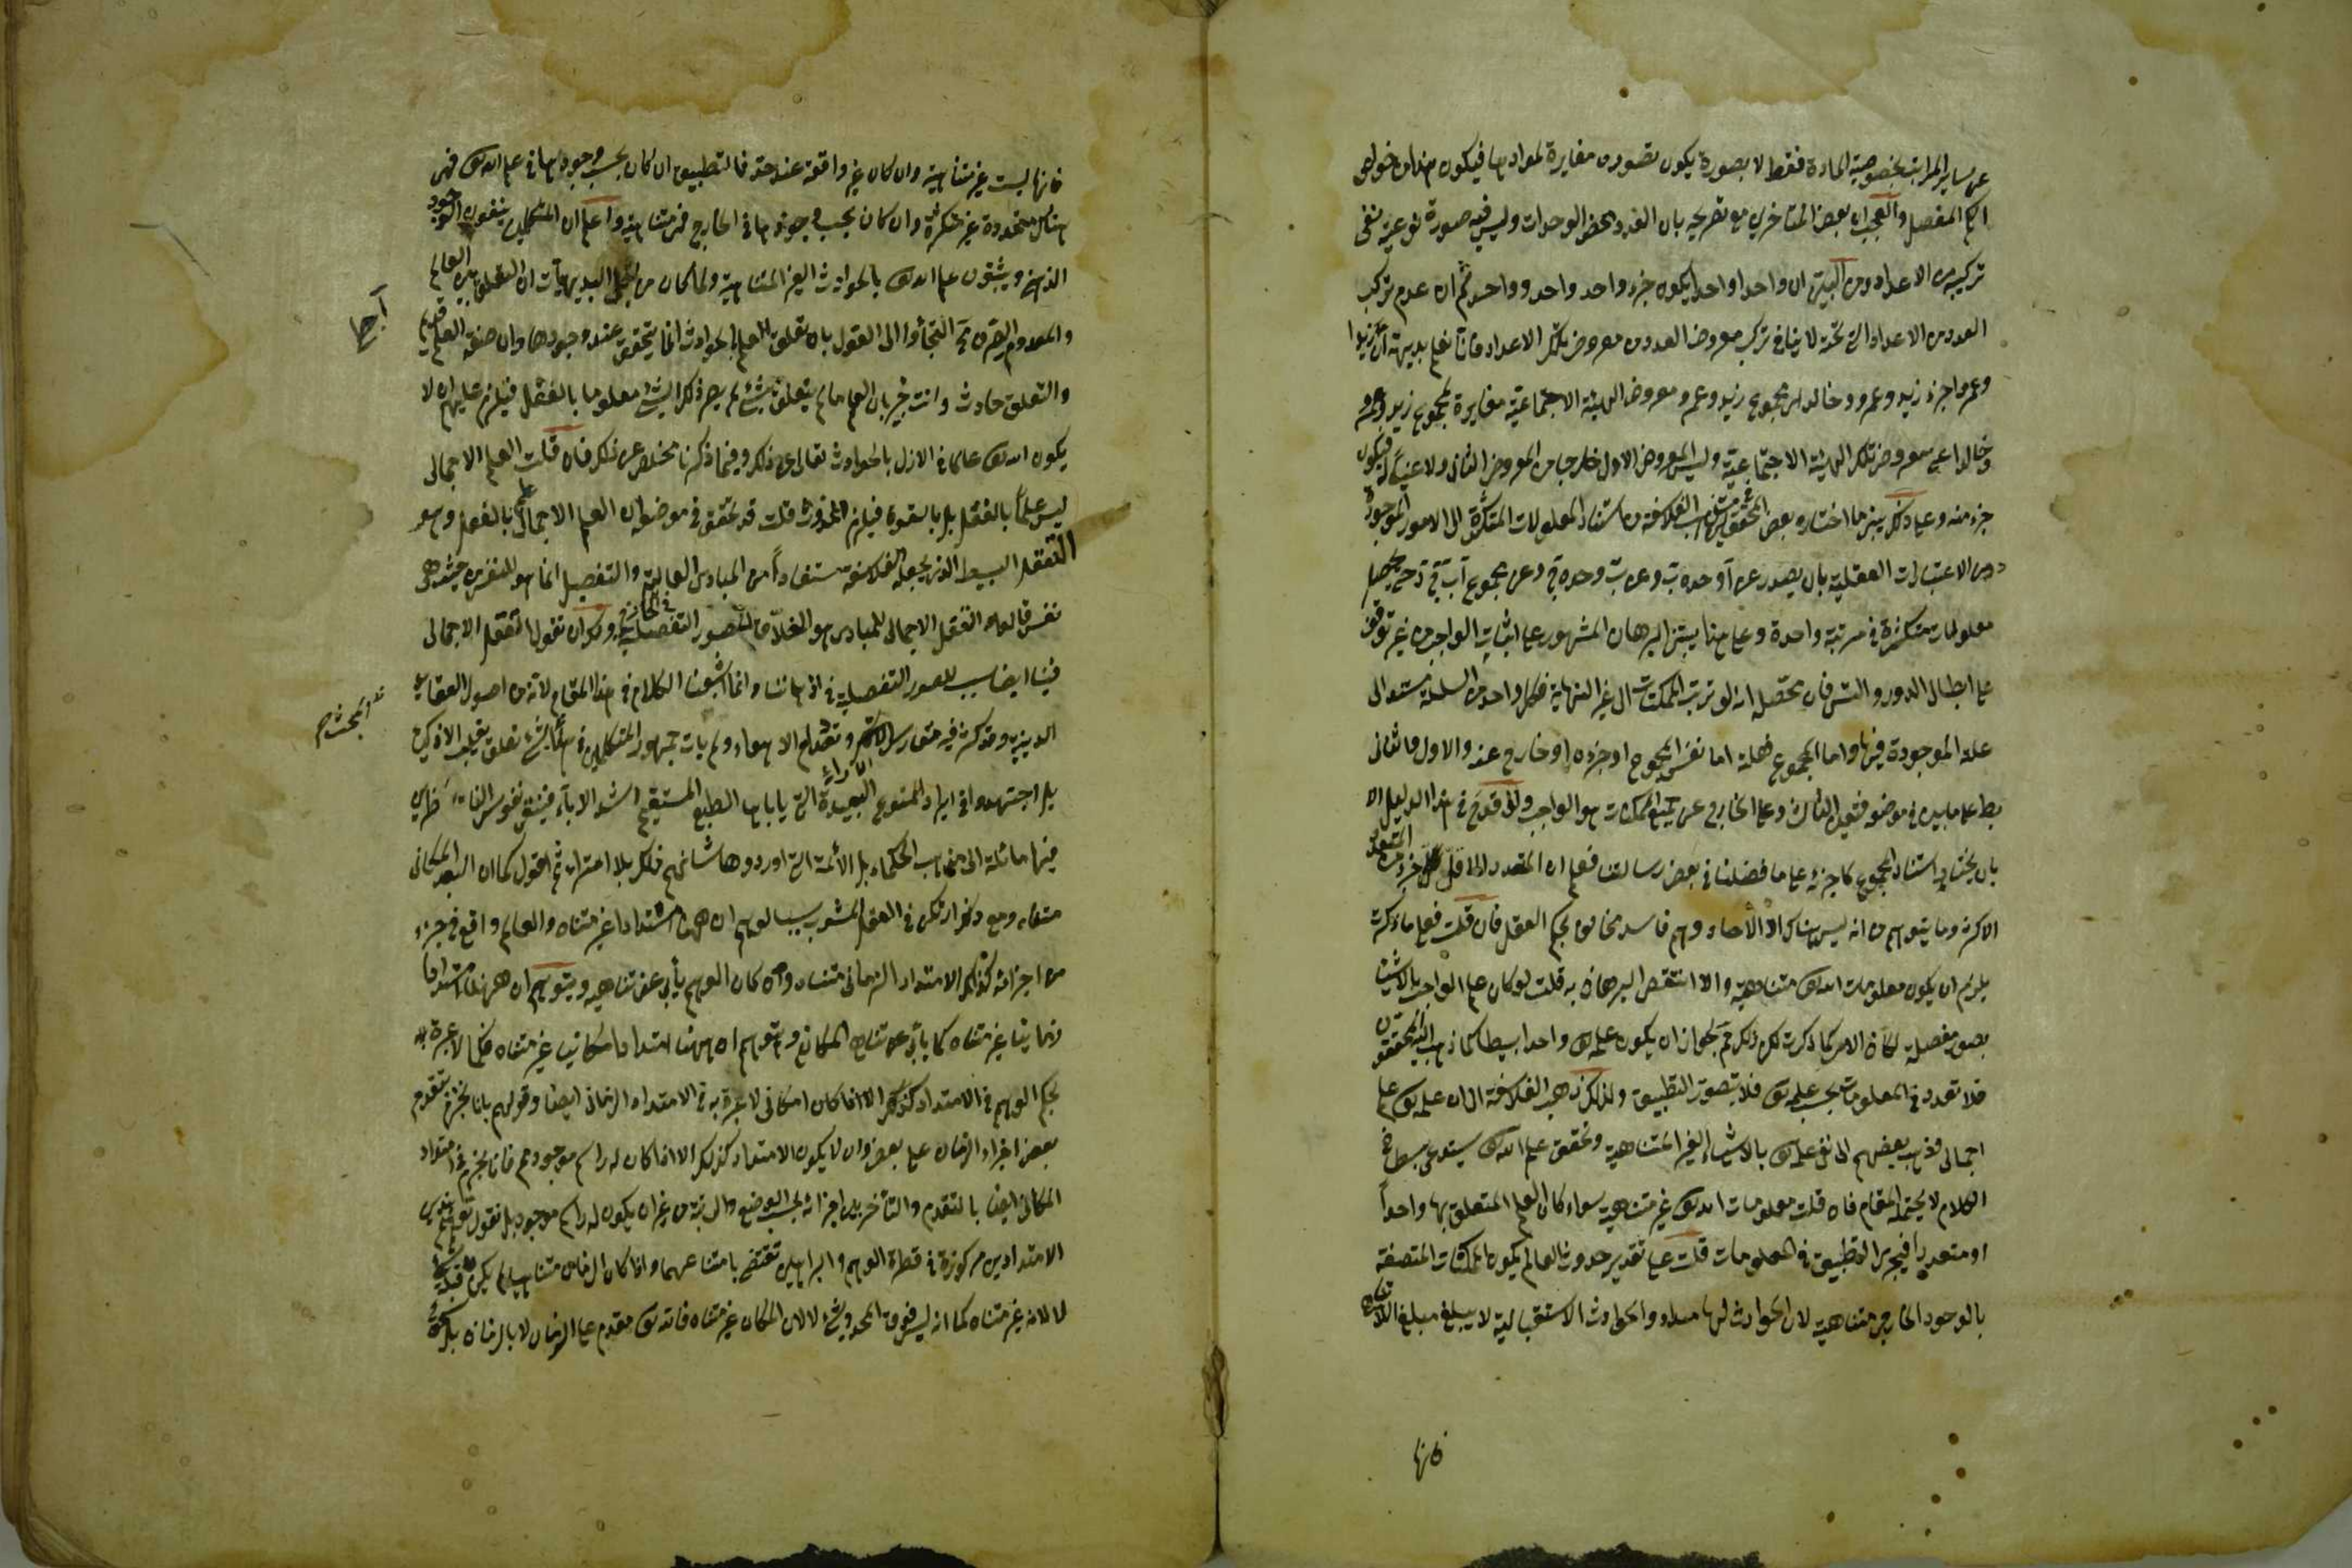 عن ساير المراتب بخصوصية المادة فقط لا بصورة يكون تصوره مغايرة لموادها فيكون هذا من خواص
الكم المنفصل والعجب ان بعض المتاخرين مع تصريحه بان العدد محض الوحدات وليس فيه صورة نوعية نفى
تركيبه من الاعداد ومن البيّن ان واحدا واحدا يكون جزء واحد واحد وواحد ثم ان عدم تركب
العدد من الاعداد التي تحته لا ينافي تركب معروض العدد من معروض تلك الاعداد فانا نعلم بديهة ان زيدا
وعمروا جزء زيد وعمرو وخالد لان مجموع زيد وعمرو معروض الهيئة الاجتماعية مغايرة لمجموع زيد وعمرو
وخالد اعني معروض تلك الهيئة الاجتماعية وليس المعروض الاول خارجا من المعروض الثاني ولا عينا له فيكون
جزء منه وعلى ذلك يبتني ما اختاره بعض المحققين من مذهب الفلاسفة من استناد المعلولات المتكثرة الى الامور الموجودة
دون الاعتبارات العقلية بان يصدر عن آ وحده ب وعن ب وحده ج وعن مجموع آ ب د حتى يحصل
معلولات متكثرة في مرتبة واحدة وعلى هذا يبتني البرهان المشهور على اثبات الواجب من غير توقف
على ابطال الدور والتس فان محصله انه لو ترتب الممكنات الى غير النهاية فكل واحد من السلسلة مستند الى
علة الموجودة فيها واما المجموع فعلته اما نفس المجموع او جزءه او خارج عنه والاول والثاني
بط على ما بين في موضعه فتعين الثالث وعلى الخارج عن جميع الممكنات هو الواجب ولئن قدح في هذا الدليل الا
بان يختار استناد المجموع كا جزئه على ما فصلنا في بعض رسالتنا فعلم ان المتعدد الاقل جزء من المتعدد
الاكثر وما يتوهم من انه ليس هناك الا الآحاد وهم فاسد مخالف لحكم العقل فان قلت فعلى ما ذكرت
يلزم ان يكون معلومات الله تعالى متناهية والا انتقض البرهان به قلت لو كان علم الواجب بالاشياء
بصور مفصلة لكان الامر كما ذكرت لكن ذلك مم لجواز ان يكون علمه تعالى واحدا بسيطا كما ذهب اليه المحققون
فلا تعدد في المعلومات بحسب علمه تعالى فلا يتصور التطبيق ولذلك ذهب الفلاسفة الى ان علمه تعالى علم
اجمالي وذهب بعضهم الى نفي علمه تعالى بالاشياء الغير المتناهية وتحقيق علم الله تعالى يستدعي بسطا في
الكلام لا يحتمله المقام فان قلت معلومات الله تعالى غير متناهية سواء كان العلم المتعلق بها واحداً
او متعددا فيجري التطبيق في المعلومات قلت على تقدير حدوث العالم يكون الممكنات المتصفة
بالوجود الخارجي متناهية لان الحوادث لها مبدء والحوادث الاستقبالية لا يبلغ مبلغ اللاتناه
فانها
فانها ليست غير متناهية وان كان غير واقفة عند حد فالتطبيق ان كان بحسب وجودها في علم الله تعالى فهي
هناك متحدة غير متكثرة وان كان بحسب وجودها في الخارج فهي متناهية واعلم ان المتكلمين ينفون الوجود
الذهني ويثبتون علم الله تعالى بالحوادث الغير المتناهية ولما كان من البديهيات ان التعلق بين العالم
والمعدوم الصرف مح التجأوا الى القول بان تعلق العلم بالحوادث انما يتحقق عند وجودها وان صفة العلم قديم
والتعلق حادث وانت خبير بان العلم ما لم يتعلق بشيء لم يصر ذلك الشيء معلوما بالفعل فيلزم عليهم ان لا
يكون الله تعالى عالما في الازل بالحوادث تعالى عن ذلك وفيما ذكرنا مخلص عن ذلك فان قلت العلم الاجمالي
ليس علماً بالفعل بل بالقوة فيلزم المحذور قلت قد تحقق في موضعه ان العلم الاجمالي علم بالفعل وهو
التعقل البسيط الذي يجعله الفلاسفة مستفاداً من المبادي العالية والتفصيل انما هو للنفس من حيث هي
نفس قالوا التعقل الاجمالي للمبادي هو الخلاق للصور التفصيلية في الخارج ولك ان تقول التعقل الاجمالي
فينا ايضا سبب للصور التفصيلية في اذهاننا وانما اشبعنا الكلام في هذا المقام لانه من اصول العقايد
الدينية وقد كثر فيه وتصادم الاهواء ولم يات جمهور المتكلمين في هذا بشيء تعلق بقلب الاذكياء
بل اجتهدوا في ايراد المنوع البعيدة الآراء التي ياباها الطبع المستقيم اشد الاباء فيبقى نفوس الناظرين
فيها مائلة الى مذهب الحكماء بل الأئمة التي اوردوها شانهم ذلك بلا امتراء ثم اقول كما ان البعد المكاني
متناه ومع ذلك ارتكز في العقل المشوب بالوهم ان ههنا امتدادا غير متناه والعالم واقع في جزء
من اجزائه كذلك الامتداد الزماني متناه وان كان الوهم يأبى عن تناهيه ويتوهم ان ههنا امتدادا
زمانيا غير متناه كما يأبى عن تناهي المكاني ويتوهم ان ههنا امتدادا مكانيا غير متناه فكما لا عبرة
بحكم الوهم في الامتداد المكاني لا عبرة به في الامتداد الزماني ايضا وقولهم بانا نجزم بتقدم
بعض اجزاء الزمان على بعض وان لا يكون الامتداد كذلك الا اذا كان له راسم موجود مم فانا نجزم في امتداد
المكاني ايضا بالتقدم والتأخر بين اجزائه بحسب الوضع والرتبة من غير ان يكون له راسم موجود بل نقول توهم هذين
الامتدادين مركوزة في فطرة الوهم والبراهين تقتضي بامتناعهما واذا كان الزمان متناهيا لم يكن قبله شيء
لا لانه غير متناه كما انه ليس فوق المحدد شيء لا لان المكان غير متناه فالله تعالى مقدم على الزمان لا بالزمان بل بنحو